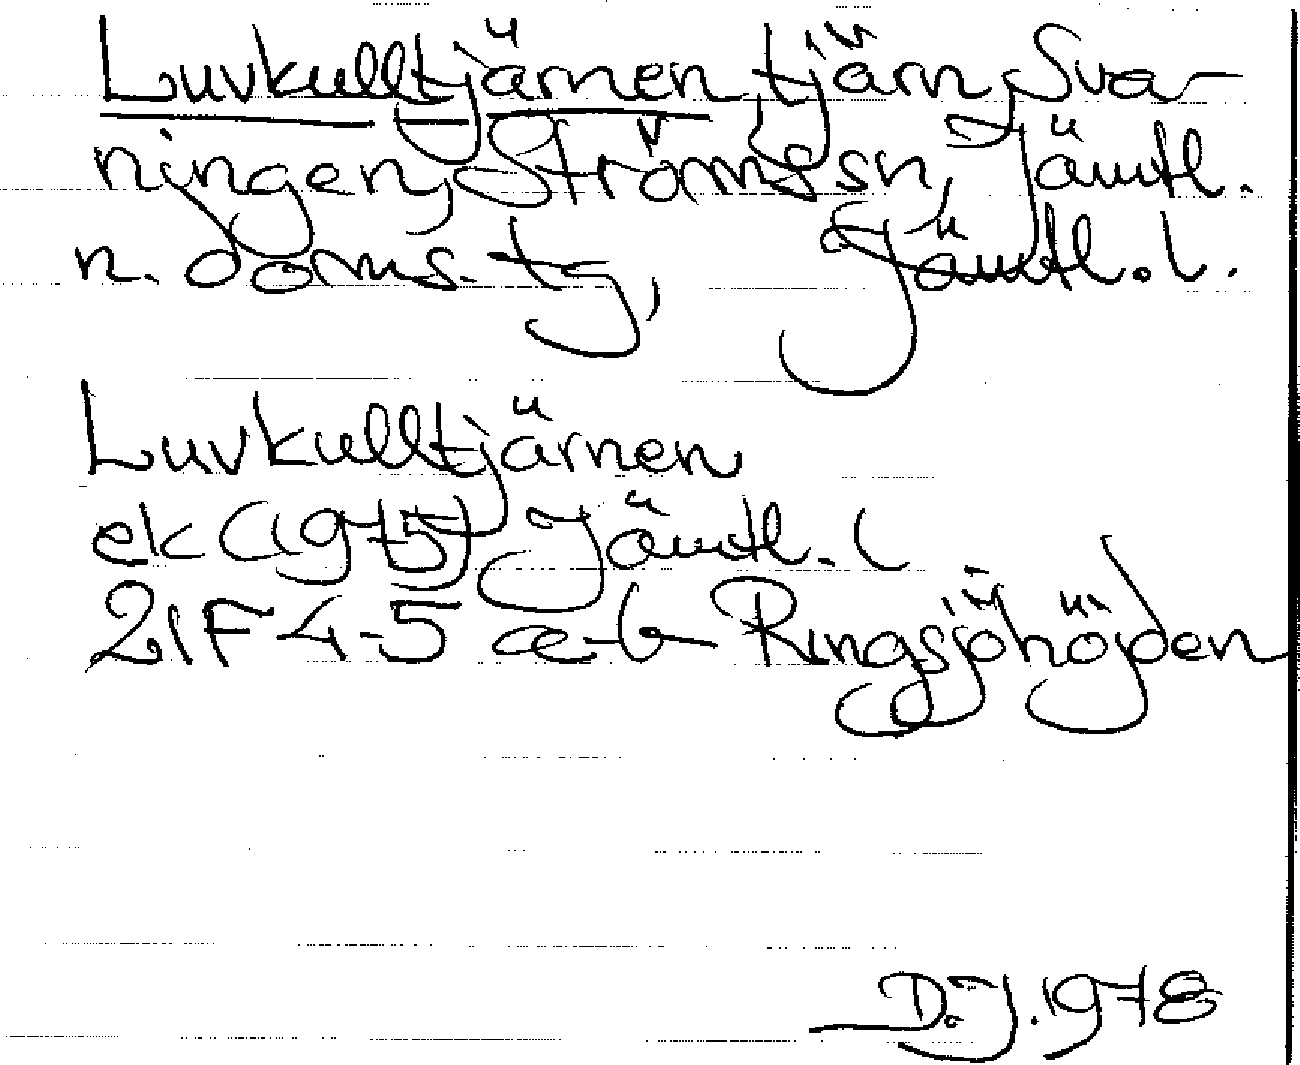 Luvkulltjärnen, tjärn, Sva-
ningen, Ströms sn, Jämtl.
n. doms. tg, Jämtl. l.
Luvkulltjärnen
ek (1975) Jämtl. l
21F 4-5 a-b Ringsjöhöjden
D. J. 1978